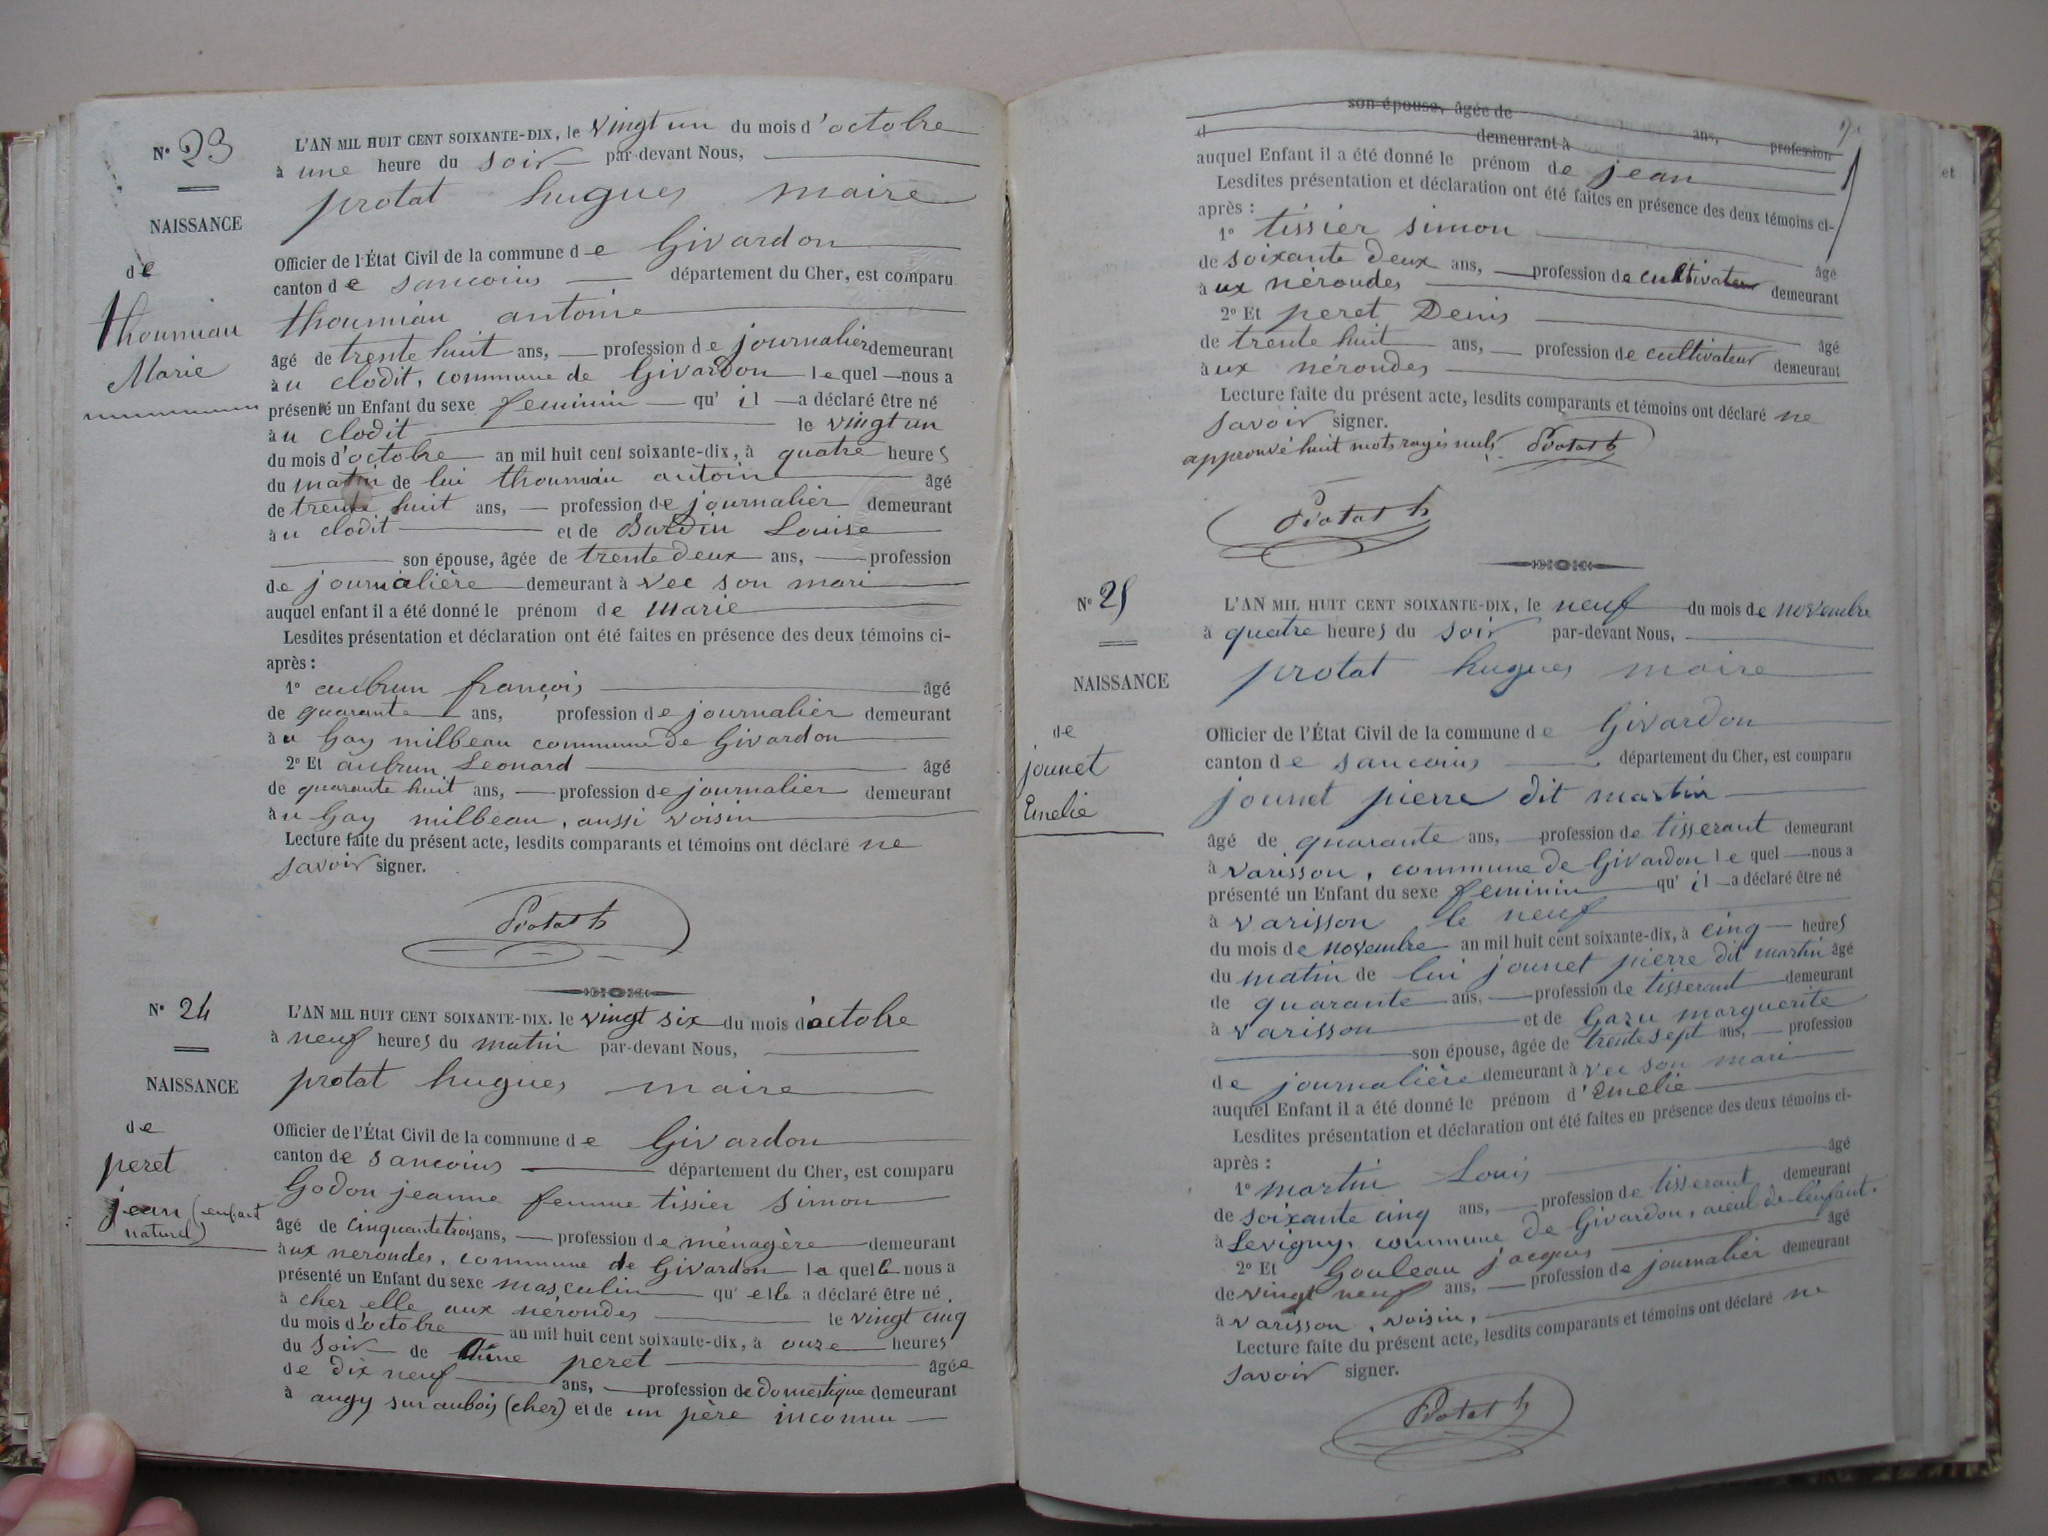 N° 23
NAISSANCE
de
thoumiau
Marie
L'AN MIL HUIT CENT SOIXANTE-DIX, le vingt un du mois d'octobre
à une heure du soir par-devant Nous,
protat hugues maire
Officier de l'État Civil de la commune de Givardon
canton de sancoins département du Cher, est comparu
thoumiau antoine
âgé de trente huit ans, profession de journalier demeurant
au clodit, commune de Givardon lequel nous a
présenté un Enfant du sexe feminin qu'il a déclaré être né
au clodit le vingt un
du mois d'octobre an mil huit cent soixante-dix, à quatre heures
du matin de lui thoumiau antoine âgé
de trente huit ans, profession de journalier demeurant
au clodit et de Burdin Louise
son épouse, âgée de trente deux ans, profession
de journalière demeurant à vec son mari
auquel enfant il a été donné le prénom de marie
Lesdites présentation et déclaration ont été faites en présence des deux témoins ci-
après :
1° aubrun françois âgé
de quarante ans, profession de journalier demeurant
au Gay milbeau commune de Givardon
2° Et aubrun Leonard âgé
de quarante huit ans, profession de journalier demeurant
au Gay milbeau, aussi voisin
Lecture faite du présent acte, lesdits comparants et témoins ont déclaré ne
savoir signer.
Protat h
N° 24
NAISSANCE
de
peret
jean (enfant
naturel)
L'AN MIL HUIT CENT SOIXANTE-DIX. le vingt six du mois d'octobre
à neuf heures du matin par-devant Nous,
protat hugues maire
Officier de l'État Civil de la commune de Givardon
canton de sancoins département du Cher, est comparu
Godon jeanne femme tissier simon
âgé de cinquante trois ans, profession de ménagère demeurant
aux nerondes, commune de Givardon laquelle nous a
présenté un Enfant du sexe masculin qu'elle a déclaré être né
à cher elle aux nérondes le vingt cinq
du mois d'octobre an mil huit cent soixante-dix, à onze heures
du soir de anne peret âgée
de dix neuf ans, profession de domestique demeurant
à augy sur aubois (cher) et de un père inconnu
son épouse, âgée de ans, profession
d demeurant à
auquel Enfant il a été donné le prénom de jean
Lesdites présentation et déclaration ont été faites en présence des deux témoins ci-
après :
1° tissier simon âgé
de soixante deux ans, profession de cultivateur demeurant
aux nérondes
2° Et peret Denis âgé
de trente huit ans, profession de cultivateur demeurant
aux nérondes
Lecture faite du présent acte, lesdits comparants et témoins ont déclaré ne
savoir signer.
approuvé huit mots rayés nuls. Protat h
Protat h
N° 25
NAISSANCE
de
jounet
Emelie
L'AN MIL HUIT CENT SOIXANTE-DIX, le neuf du mois de novembre
à quatre heures du soir par-devant Nous,
protat hugues maire
Officier de l'État Civil de la commune de Givardon
canton de sancoins département du Cher, est comparu
jounet pierre dit martin
âgé de quarante ans, profession de tisserant demeurant
à varisson, commune de Givardon lequel nous a
présenté un Enfant du sexe feminin qu'il a déclaré être né
à varisson le neuf
du mois de novembre an mil huit cent soixante-dix, à cinq heures
du matin de lui jounet pierre dit martin âgé
de quarante ans, profession de tisserant demeurant
à varisson et de Gazu marguerite
son épouse, âgée de trente sept ans, profession
de journalière demeurant à vec son mari
auquel Enfant il a été donné le prénom d'Emelie
Lesdites présentation et déclaration ont été faites en présence des deux témoins ci-
après :
1° martin Louis âgé
de soixante cinq ans, profession de tisserant demeurant
à Levigny, commune de Givardon, aieul de l'enfant.
2° Et Gouleau jacques âgé
de vingt neuf ans, profession de journalier demeurant
à varisson, voisin,
Lecture faite du présent acte, lesdits comparants et témoins ont déclaré ne
savoir signer.
Protat h
et